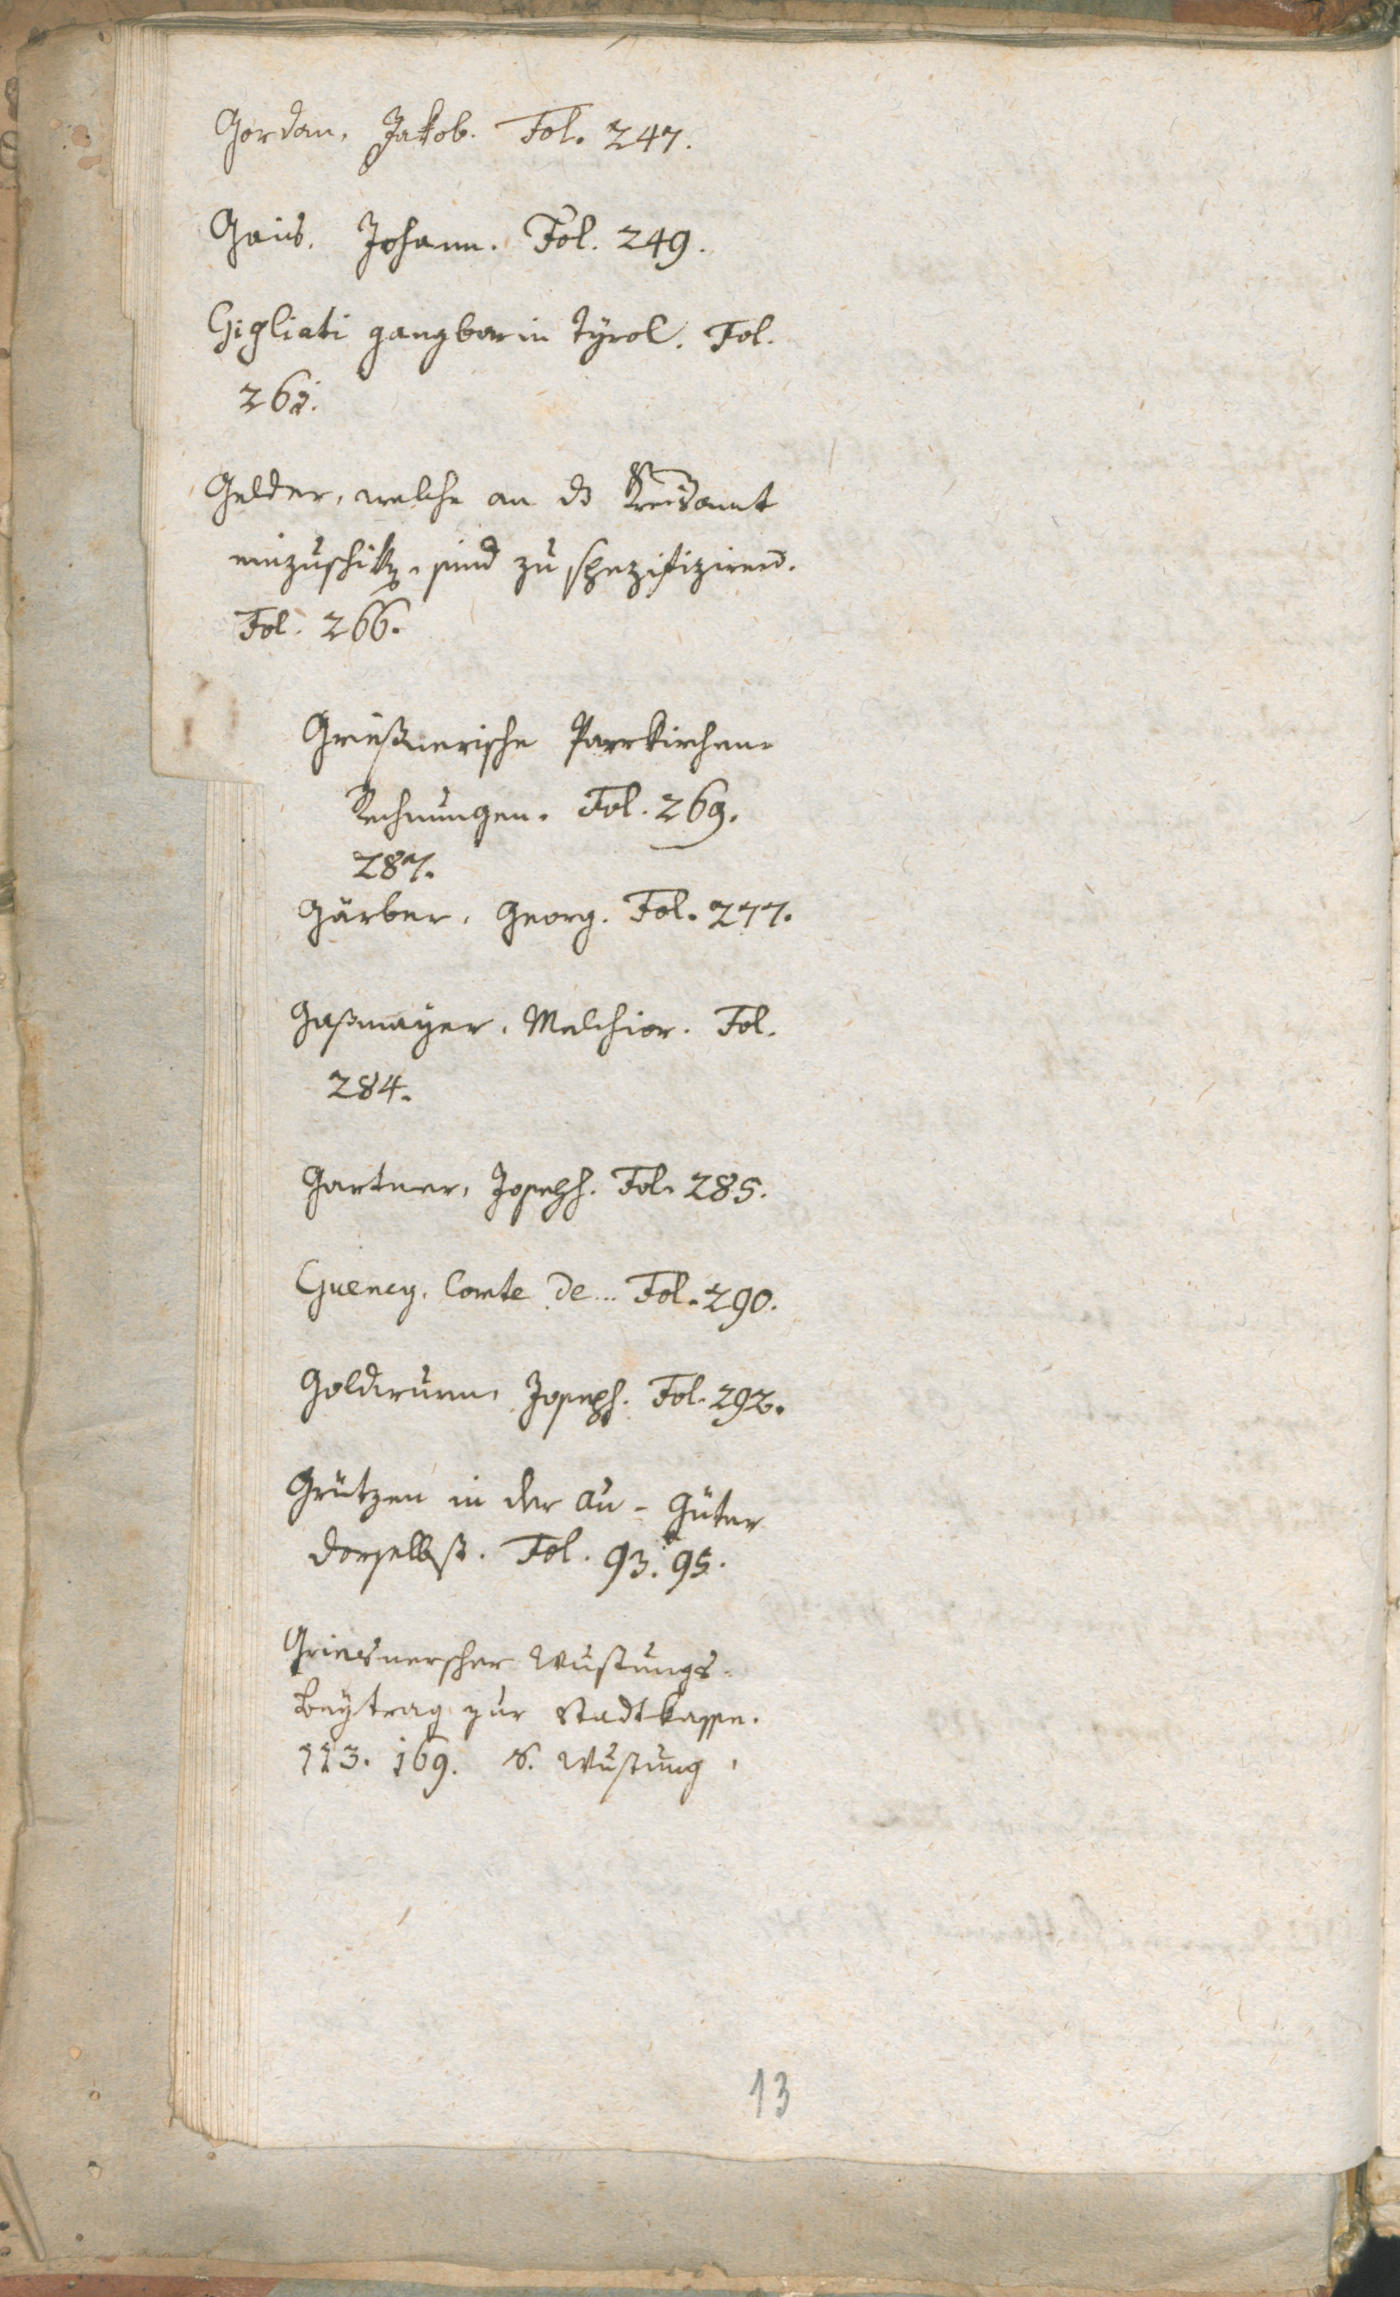 Gordan, Jakob. Fol. 247.
Gais, Johann. Fol. 249.
Gigliati gangbar in Tyrol. Fol.
262.
Gelder, welche an ds Kreisamt
einzuschik, sind zu spezifiziren.
Fol. 266.
Grießnerische Pfarrkirchen-
Rechnungen. Fol. 269.
287.
Gärber, Georg. Fol. 277.
Gaßmayer, Melchior. Fol.
284.
Gartner, Joseph. Fol. 285.
Comte de... Fol. 290.
Joseph. Fol. 292.
Grützen in der Au - Güter
dorselbst. Fol. 93. 95.
Griesnerscher Wustungs-
Beytrag zur Stadtkasse.
113. 169. S. Wustung.
13